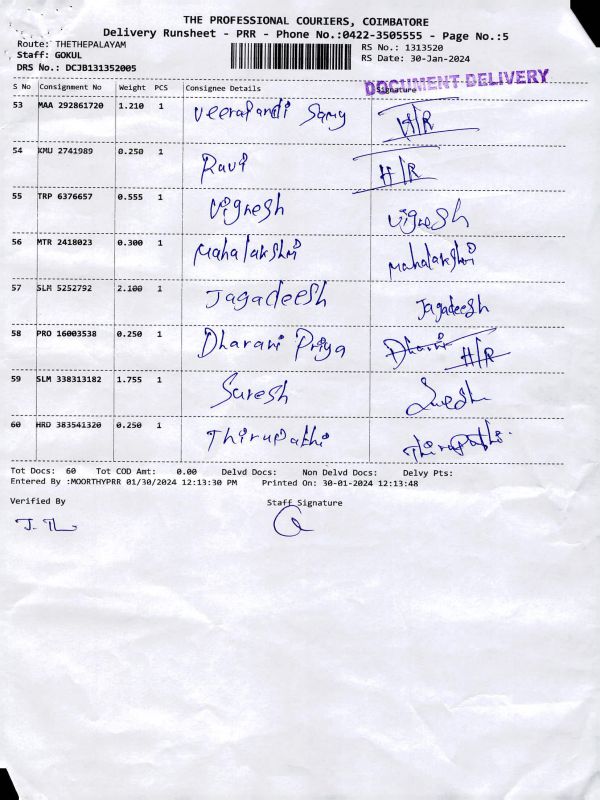 THE PROFESSIONAL COURIERS, COIMBATORE
Delivery Runsheet - PRR - Phone No.:0422-3505555 - Page No.:5
Route: THETHEPALAYAM
RS No.: 1313520
Staff: GOKUL
RS Date: 30-Jan-2024
DRS No.: DCJB131352005
DOCUMENT DELIVERY
S No Consignment No Weight PCS Consignee Details Signature
53 MAA 292861720 1.210 1 Veerapandi Samy H/R
54 KMU 2741989 0.250 1 Ravi H/R
55 TRP 6376657 0.555 1 Vignesh Vignesh
56 MTR 2418023 0.300 1 Mahalakshmi Mahalakshmi
57 SLM 5252792 2.100 1 Jagadeesh Jagadeesh
58 PRO 16003538 0.250 1 Dharani Priya H/R
59 SLM 338313182 1.755 1 Suresh Suresh
60 HRD 383541320 0.250 1 Thirupathi Thirupathi
Tot Docs: 60 Tot COD Amt: 0.00 Delvd Docs: Non Delvd Docs: Delvy Pts:
Entered By :MOORTHYPRR 01/30/2024 12:13:30 PM Printed On: 30-01-2024 12:13:48
Verified By Staff Signature